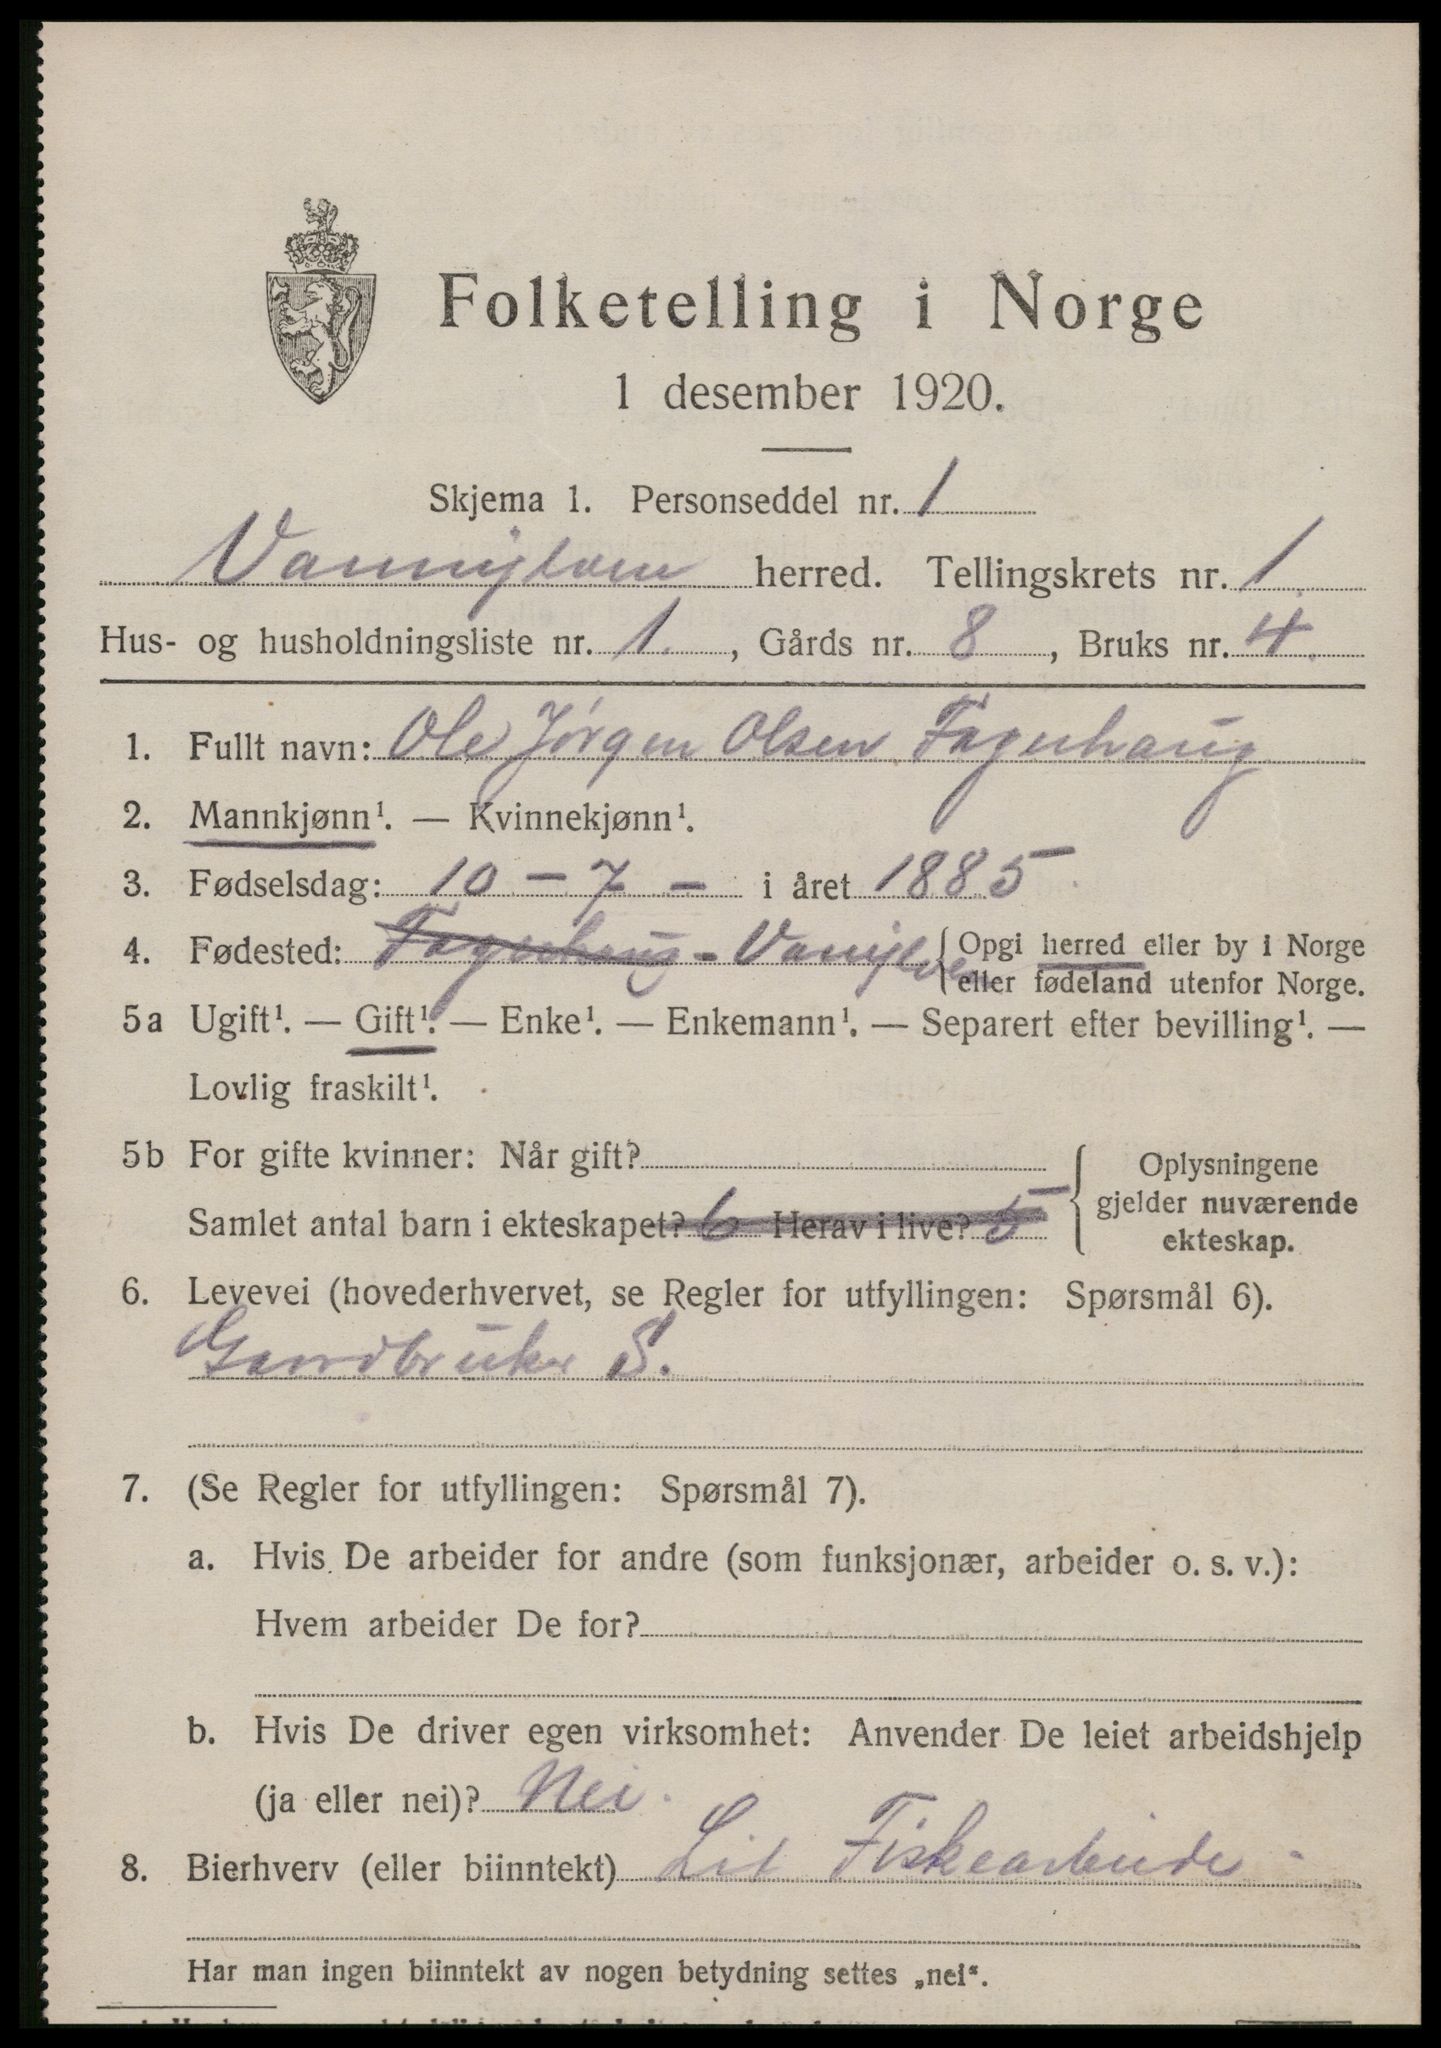 Folketelling i Norge
1 desember 1920.
Skjema 1. Personseddel nr. 1
Vannylven herred. Tellingskrets nr. 1.
Hus- og husholdningsliste nr. 1. , Gårds nr. 8 , Bruks nr. 4.
1. Fullt navn: Ole Jørgen Olsen Fagerhaug
2. Mannkjønn¹. — Kvinnekjønn¹.
3. Fødselsdag: 10 – 7 – i året 1885
4. Fødested: Fagerhaug - Vanylven {Opgi herred eller by i Norge
eller fødeland utenfor Norge.
5a Ugift¹. — Gift¹. — Enke¹. — Enkemann¹. — Separert efter bevilling¹. —
Lovlig fraskilt¹.
5b For gifte kvinner: Når gift?
Samlet antal barn i ekteskapet? 6 Herav i live? 5
Oplysningene
gjelder nuværende
ekteskap.
6. Levevei (hovederhvervet, se Regler for utfyllingen: Spørsmål 6).
Gardbruker S.
7. (Se Regler for utfyllingen: Spørsmål 7).
a. Hvis De arbeider for andre (som funksjonær, arbeider o. s. v.):
Hvem arbeider De for?
b. Hvis De driver egen virksomhet: Anvender De leiet arbeidshjelp
(ja eller nei)? Nei.
8. Bierhverv (eller biinntekt) Lit Fiskearbeide -
Har man ingen biinntekt av nogen betydning settes „nei“.